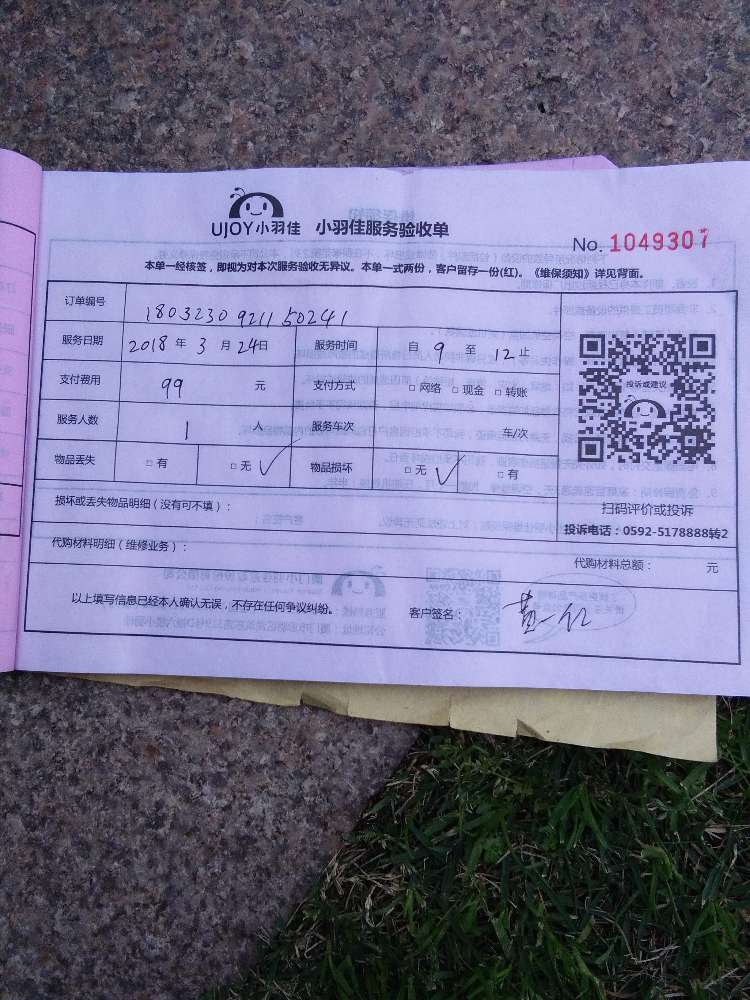 UJOY小羽佳 小羽佳服务验收单
No. 1049307
本单一经核签，即视为对本次服务验收无异议。本单一式两份，客户留存一份(红)。《维保须知》详见背面。
订单编号 18032309211150241
服务日期 2018 年 3 月 24日 服务时间 自 9 至 12 止
支付费用 99 元 支付方式 □ 网络 □ 现金 □ 转账
投诉或建议
服务人数 1 人 服务车次 车/次
物品丢失 □ 有 □ 无 ✓ 物品损坏 □ 无 ✓ □ 有
扫码评价或投诉
损坏或丢失物品明细（没有可不填）：
投诉电话：0592-5178888转2
代购材料明细（维修业务）：
代购材料总额： 元
以上填写信息已经本人确认无误，不存在任何争议纠纷。 客户签名：